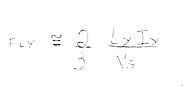 FLY ≅ 2/3 LyIy/Vs